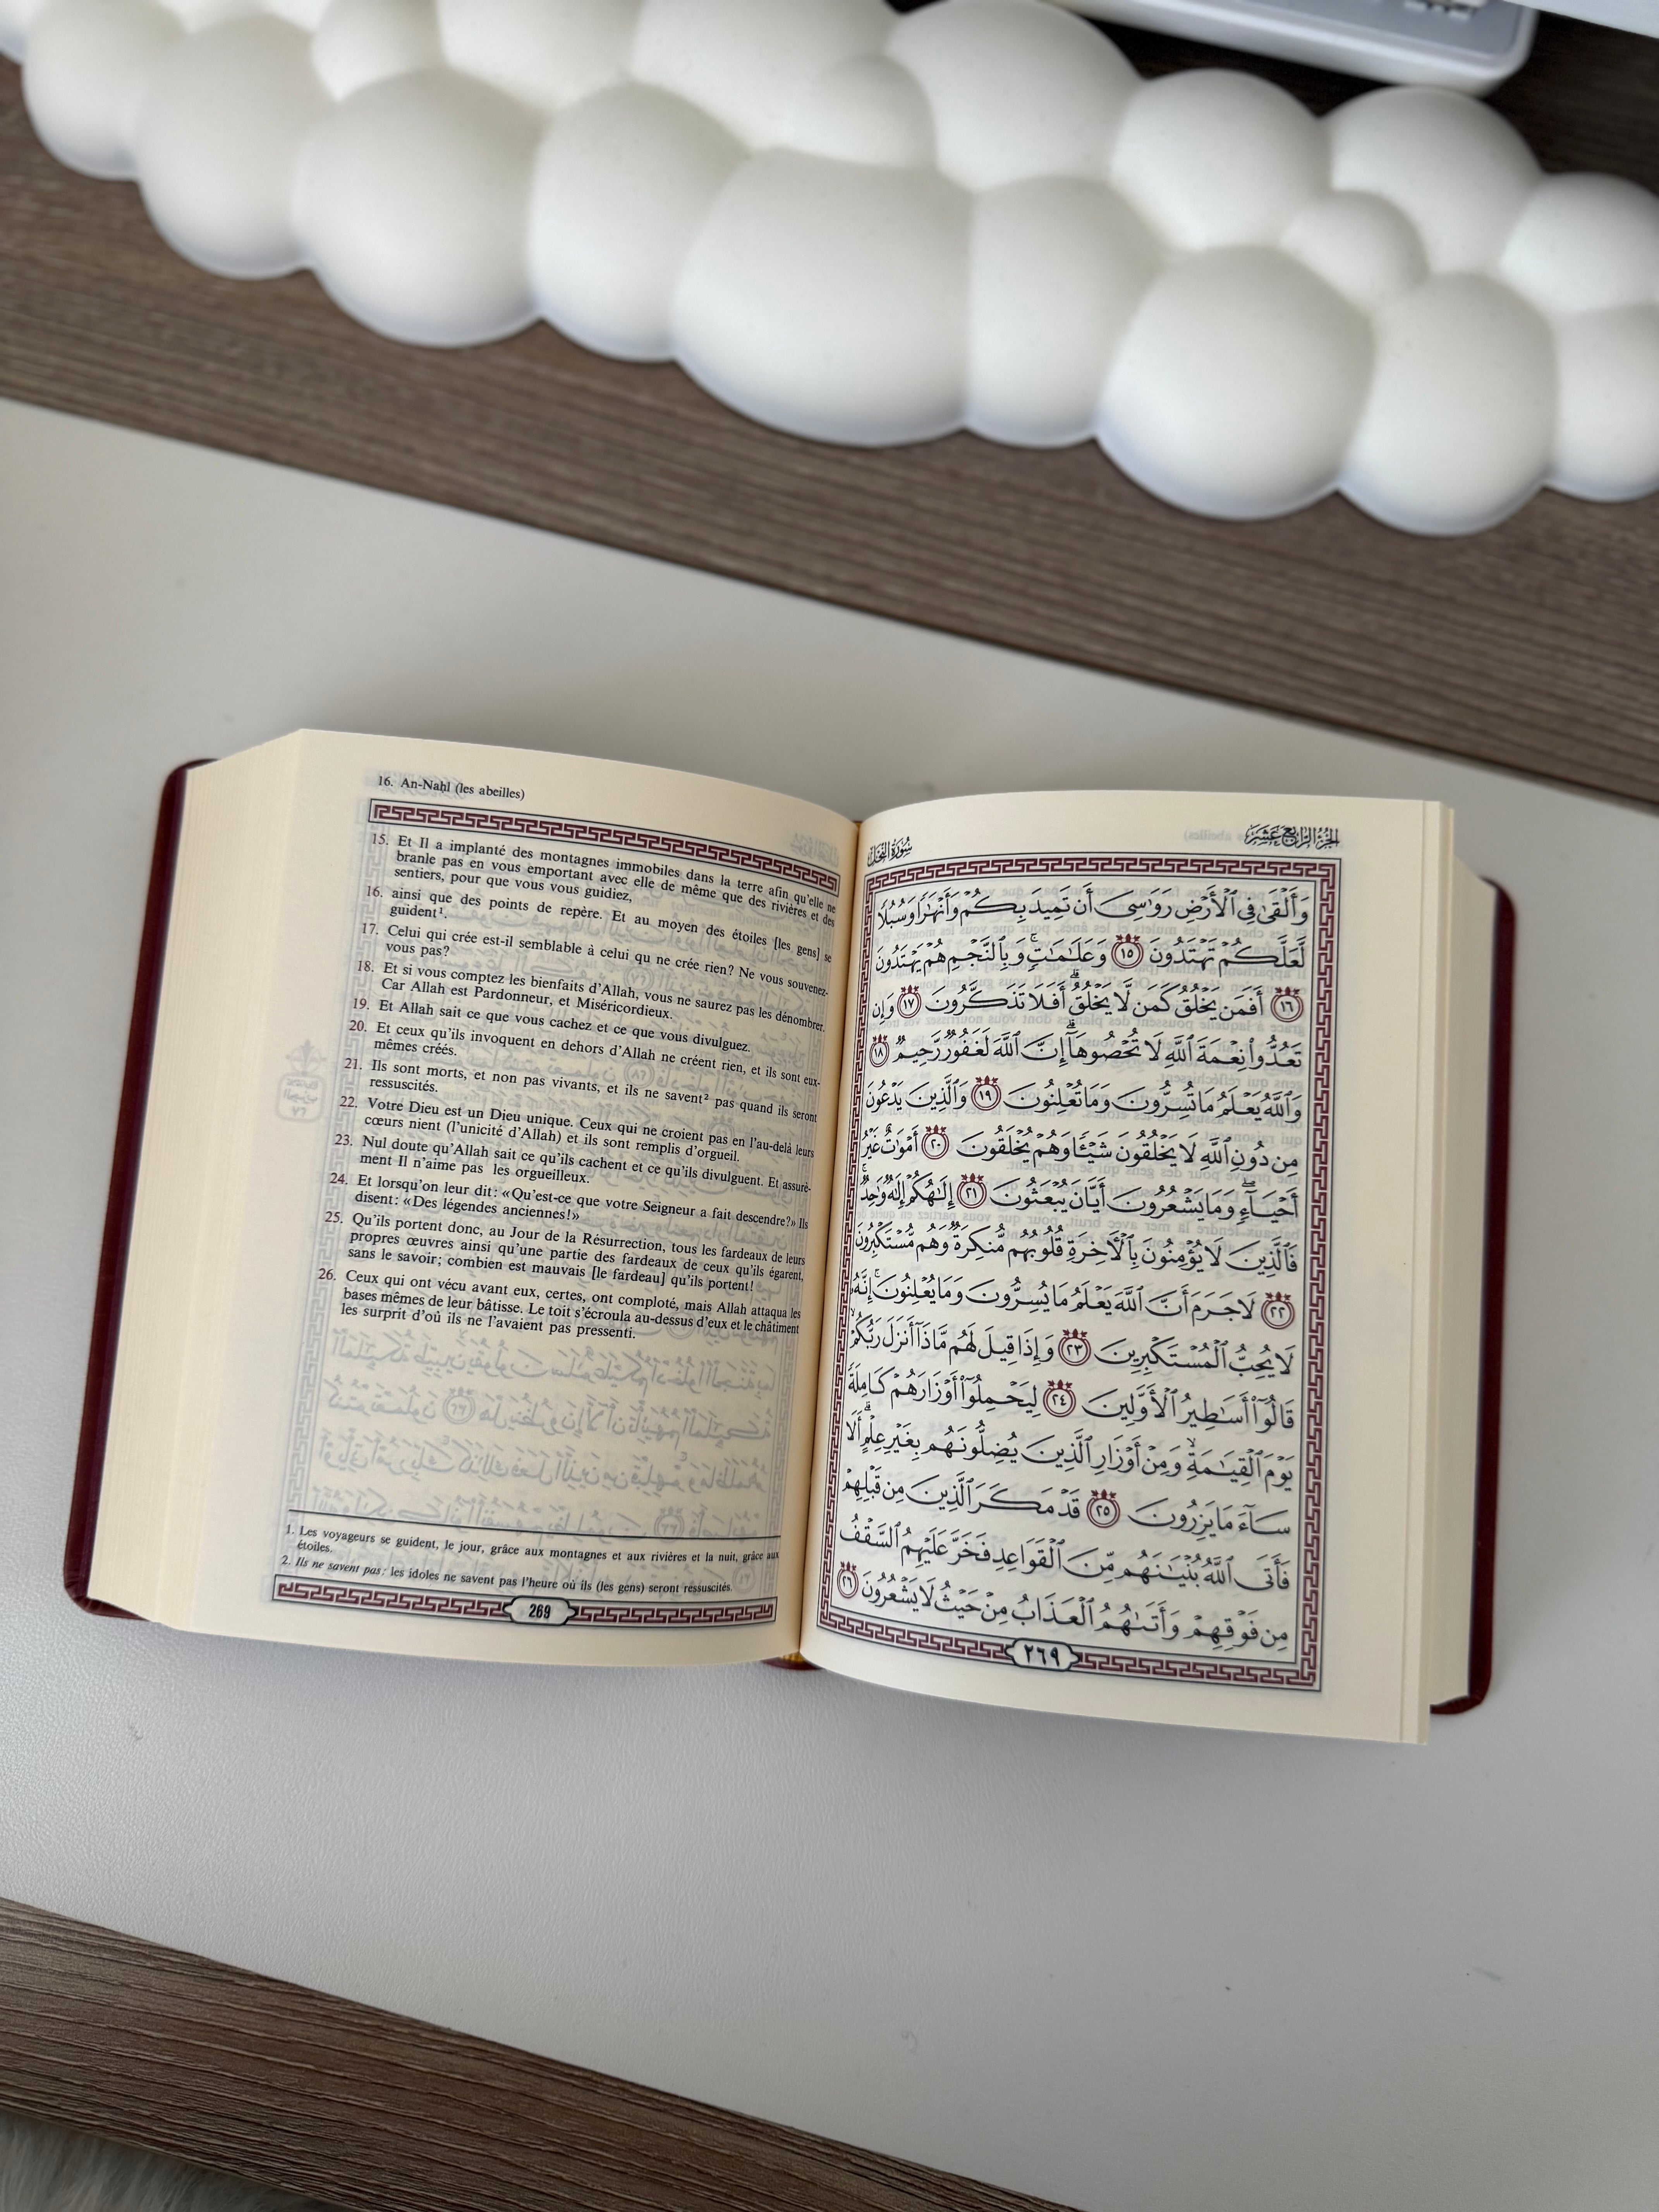 16. An-Naḥl (les abeilles)
15. Et Il a implanté des montagnes immobiles dans la terre afin qu'elle ne
branle pas en vous emportant avec elle de même que des rivières et des
sentiers, pour que vous vous guidiez,
16. ainsi que des points de repère. Et au moyen des étoiles [les gens] se
guident¹.
17. Celui qui crée est-il semblable à celui qu ne crée rien? Ne vous souvenez-
vous pas?
18. Et si vous comptez les bienfaits d'Allah, vous ne saurez pas les dénombrer.
Car Allah est Pardonneur, et Miséricordieux.
19. Et Allah sait ce que vous cachez et ce que vous divulguez.
20. Et ceux qu'ils invoquent en dehors d'Allah ne créent rien, et ils sont eux-
mêmes créés.
21. Ils sont morts, et non pas vivants, et ils ne savent² pas quand ils seront
ressuscités.
22. Votre Dieu est un Dieu unique. Ceux qui ne croient pas en l'au-delà leurs
cœurs nient (l'unicité d'Allah) et ils sont remplis d'orgueil.
23. Nul doute qu'Allah sait ce qu'ils cachent et ce qu'ils divulguent. Et assuré-
ment Il n'aime pas les orgueilleux.
24. Et lorsqu'on leur dit: «Qu'est-ce que votre Seigneur a fait descendre?» Ils
disent: «Des légendes anciennes!»
25. Qu'ils portent donc, au Jour de la Résurrection, tous les fardeaux de leurs
propres œuvres ainsi qu'une partie des fardeaux de ceux qu'ils égarent,
sans le savoir; combien est mauvais [le fardeau] qu'ils portent!
26. Ceux qui ont vécu avant eux, certes, ont comploté, mais Allah attaqua les
bases mêmes de leur bâtisse. Le toit s'écroula au-dessus d'eux et le châtiment
les surprit d'où ils ne l'avaient pas pressenti.
1. Les voyageurs se guident, le jour, grâce aux montagnes et aux rivières et la nuit, grâce aux
étoiles.
2. Ils ne savent pas: les idoles ne savent pas l'heure où ils (les gens) seront ressuscités.
269
الجزء الرابع عشر
سورة النحل
وَأَلْقَىٰ فِى ٱلْأَرْضِ رَوَٰسِىَ أَن تَمِيدَ بِكُمْ وَأَنْهَٰرًا وَسُبُلًا
لَّعَلَّكُمْ تَهْتَدُونَ ١٥ وَعَلَٰمَٰتٍ ۚ وَبِٱلنَّجْمِ هُمْ يَهْتَدُونَ
١٦ أَفَمَن يَخْلُقُ كَمَن لَّا يَخْلُقُ ۗ أَفَلَا تَذَكَّرُونَ ١٧ وَإِن
تَعُدُّوا۟ نِعْمَةَ ٱللَّهِ لَا تُحْصُوهَآ ۗ إِنَّ ٱللَّهَ لَغَفُورٌ رَّحِيمٌ ١٨
وَٱللَّهُ يَعْلَمُ مَا تُسِرُّونَ وَمَا تُعْلِنُونَ ١٩ وَٱلَّذِينَ يَدْعُونَ
مِن دُونِ ٱللَّهِ لَا يَخْلُقُونَ شَيْـًٔا وَهُمْ يُخْلَقُونَ ٢٠ أَمْوَٰتٌ غَيْرُ
أَحْيَآءٍ ۖ وَمَا يَشْعُرُونَ أَيَّانَ يُبْعَثُونَ ٢١ إِلَٰهُكُمْ إِلَٰهٌ وَٰحِدٌ ۚ
فَٱلَّذِينَ لَا يُؤْمِنُونَ بِٱلْءَاخِرَةِ قُلُوبُهُم مُّنكِرَةٌ وَهُم مُّسْتَكْبِرُونَ
٢٢ لَا جَرَمَ أَنَّ ٱللَّهَ يَعْلَمُ مَا يُسِرُّونَ وَمَا يُعْلِنُونَ ۚ إِنَّهُۥ
لَا يُحِبُّ ٱلْمُسْتَكْبِرِينَ ٢٣ وَإِذَا قِيلَ لَهُم مَّاذَآ أَنزَلَ رَبُّكُمْ ۙ
قَالُوٓا۟ أَسَٰطِيرُ ٱلْأَوَّلِينَ ٢٤ لِيَحْمِلُوٓا۟ أَوْزَارَهُمْ كَامِلَةً
يَوْمَ ٱلْقِيَٰمَةِ ۙ وَمِنْ أَوْزَارِ ٱلَّذِينَ يُضِلُّونَهُم بِغَيْرِ عِلْمٍ ۗ أَلَا
سَآءَ مَا يَزِرُونَ ٢٥ قَدْ مَكَرَ ٱلَّذِينَ مِن قَبْلِهِمْ
فَأَتَى ٱللَّهُ بُنْيَٰنَهُم مِّنَ ٱلْقَوَاعِدِ فَخَرَّ عَلَيْهِمُ ٱلسَّقْفُ
مِن فَوْقِهِمْ وَأَتَىٰهُمُ ٱلْعَذَابُ مِنْ حَيْثُ لَا يَشْعُرُونَ ٢٦
٢٦٩